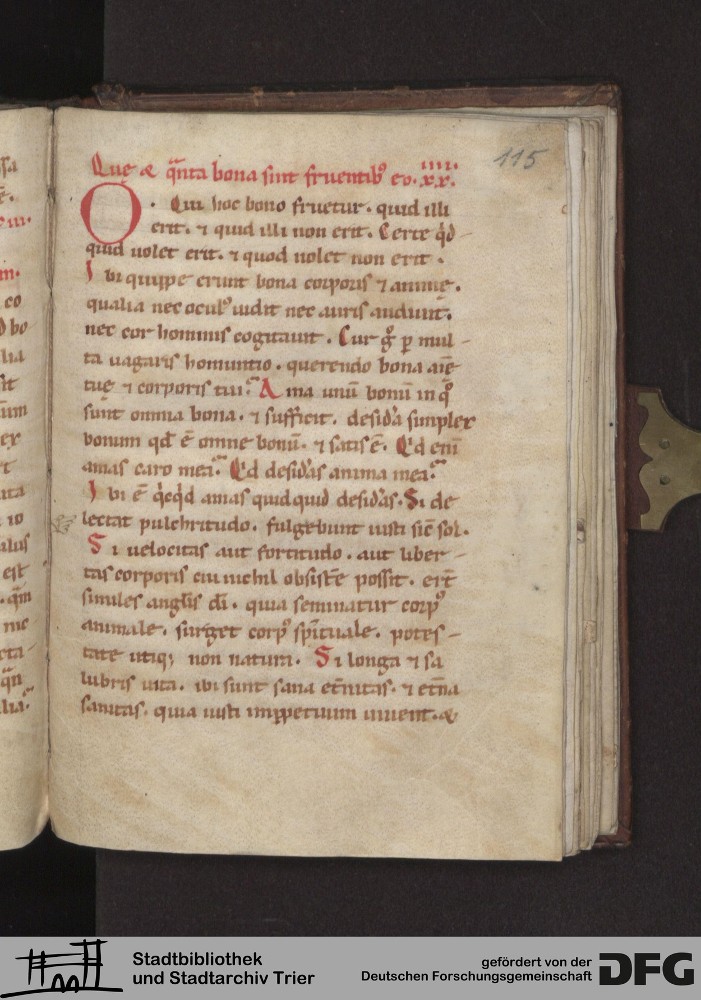 115
Quę & q̄nta bona sint fruentib⁹ eo. xx.
iiii.
O. Qui hoc bono fruetur. quid illi
erit. ⁊ quid illi non erit. Certe q̇d-
quid uolet erit. ⁊ quod nolet non erit.
Ibi quippe erunt bona corporis ⁊ animę.
qualia nec ocul⁹ uidit nec auris audiuit.
nec cor hominis cogitauit. Cur g̊ p mul-
ta uagaris homuntio. querendo bona aīę
tuę ⁊ corporis tui? Ama unū bonū in q̊
sunt omnia bona. ⁊ sufficit. desid̓a simplex
bonum qd̓ ē omne bonū. ⁊ satis ē. Q̓d enī
amas caro mea? Q̓d desid̓as anima mea?
Ibi ē q̇cq̇d amas quidquid desid̓as. Si de
lectat pulchritudo. fulgebunt iusti sic̄ sol.
Si uelocitas aut fortitudo. aut liber-
tas corporis cui nichil obsist̄e possit. er̄t
similes angl̄is dī. quia seminatur corp⁹
animale. surget corp⁹ sp̄ituale. potes-
tate utiq; non natura. Si longa ⁊ sa
lubris uita. ibi sunt sana et̄nitas. ⁊ et̄na
sanitas. quia iusti imppetuum uiuent. &
Stadtbibliothek
und Stadtarchiv Trier
gefördert von der
Deutschen Forschungsgemeinschaft
DFG